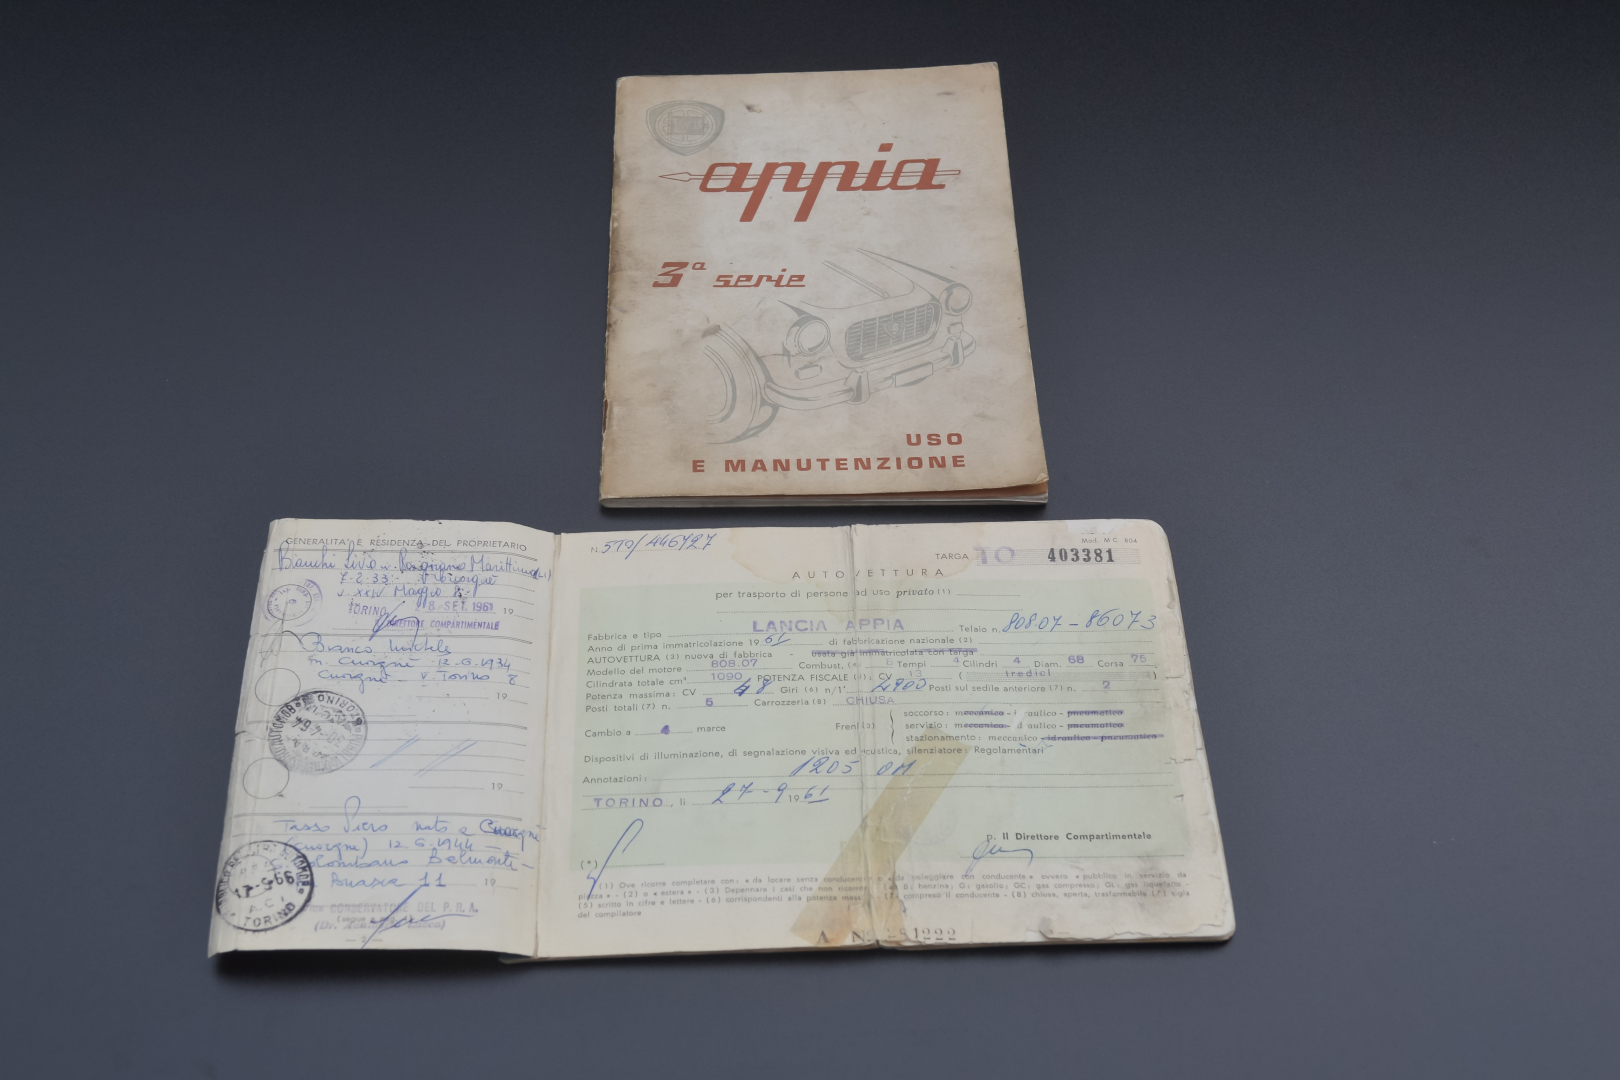 appia
3ª serie
USO
E MANUTENZIONE
GENERALITA' E RESIDENZA DEL PROPRIETARIO
7-2-33
v. XXIV Maggio
TORINO 8. SET. 1961 19
DIRETTORE COMPARTIMENTALE
Bianco Michele
in Cuorgnè 12-6-1934
Cuorgnè - v. Torino 8
19
19
Tasso Piero nato a
(Cuorgnè) 12.6.1944
Colombano Belmonte
11 19
17-5-66
TORINO
CONSERVATORE DEL P.R.A.
N. 570/446727
Mod. M C 804
TARGA TO 403381
AUTOVETTURA
per trasporto di persone ad uso privato (1)
Fabbrica e tipo LANCIA APPIA Telaio n. 808.07 - 86073
Anno di prima immatricolazione 19 61 di fabbricazione nazionale (2)
AUTOVETTURA (3) nuova di fabbrica - usata già immatricolata con targa
Modello del motore 808.07 Combust. (4) B Tempi 4 Cilindri 4 Diam. 68 Corsa 75
Cilindrata totale cm³ 1090 POTENZA FISCALE (5): CV 13 (tredici)
Potenza massima: CV 48 Giri (6) n/1' 4900 Posti sul sedile anteriore (7) n. 2
Posti totali (7) n. 5 Carrozzeria (8) CHIUSA
Cambio a 4 marce Freni (3)
soccorso: meccanico - idraulico - pneumatico
servizio: meccanico - idraulico - pneumatico
stazionamento: meccanico - idraulico - pneumatico
Dispositivi di illuminazione, di segnalazione visiva ed acustica, silenziatore: Regolamentari
Annotazioni: 1205 OM
TORINO, li 27-9 19 61
p. Il Direttore Compartimentale
(*)
(1) Ove ricorre completare con: « da locare senza conducente » o « da noleggiare con conducente » ovvero « pubblico in servizio da
piazza » - (2) o « estera » - (3) Depennare i casi che non ricorrono - (4) B: benzina; G: gasolio; GC: gas compresso; GL: gas liquefatto -
(5) scritto in cifre e lettere - (6) corrispondenti alla potenza massima - (7) compreso il conducente - (8) chiusa, aperta, trasformabile (*) sigla
del compilatore